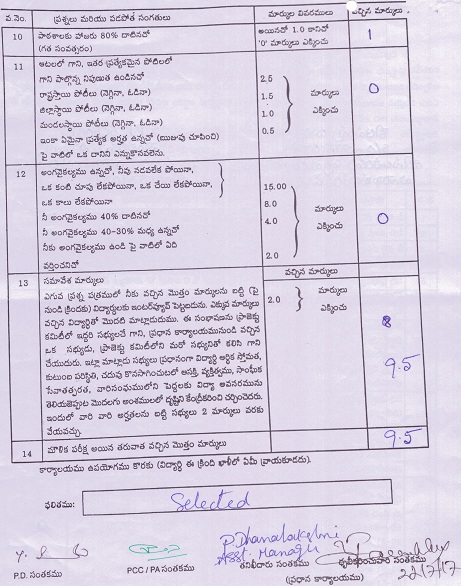 వ.నెం. ప్రశ్నలు మరియు పదపోత సంగతులు మార్కుల వివరములు వచ్చిన మార్కులు
10 పాఠశాలకు హాజరు 80% దాటినచో అయినచో 1.0 కానిచో 1
(గత సంవత్సరం) '0' మార్కులు ఎక్కించు
11 ఆటలలో గాని, ఇతర ప్రత్యేకమైన పోటిలలో
గాని పాల్గొన్న నిపుణుత ఉండినచో 2.5
రాష్ట్రస్థాయి పోటీలు (నెగ్గినా, ఓడినా) 1.5 మార్కులు 0
జిల్లాస్థాయి పోటీలు (నెగ్గినా, ఓడినా) 1.0 ఎక్కించు
మండలస్థాయి పోటీలు (నెగ్గినా, ఓడినా) 0.5
ఇంకా ఏమైనా ప్రత్యేక అర్హత ఉన్నచో (ఋజువు చూపించి)
పై వాటిలో ఒక దానిని ఎన్నుకొనవలెను.
12 అంగవైకల్యము ఉన్నచో, నీవు నడవలేక పోయినా,
ఒక కంటి చూపు లేకపోయినా, ఒక చేయి లేకపోయినా, 15.00
ఒక కాలు లేకపోయినా 8.0 మార్కులు
నీ అంగవైకల్యము 40% దాటినచో 4.0 ఎక్కించు 0
నీ అంగవైకల్యము 40-30% మధ్య ఉన్నచో
నీకు అంగవైకల్యము ఉండి పై వాటిలో ఏది 2.0
వర్తించనిచో
13 సమావేశ మార్కులు వచ్చిన మార్కులు
ఎగువ ప్రశ్న పత్రములో నీకు వచ్చిన మొత్తం మార్కులను బట్టి (పై 2.0 మార్కులు
నుండి క్రిందకు) విద్యార్థులకు ఇంటర్వ్యూల్ పెట్టబడును. ఎక్కువ మార్కులు ఎక్కించు
వచ్చిన విద్యార్థితో మొదటి మాట్లాడుదుము. ఈ సంభాషణను ప్రాజెక్టు 8
కమిటీలో ఇద్దరి సభ్యులచే గాని, ప్రధాన కార్యాలయమునుండి వచ్చిన
ఒక సభ్యుడు, ప్రాజెక్టు కమిటీలోని మరో సభ్యునితో కలిసి గాని
చేయుదురు. ఇట్లా మాట్లాడు సభ్యులు ప్రధానంగా విద్యార్థి ఆర్థిక స్తోమత, 9.5
కుటుంబ పరిస్థితి, చదువు కొనసాగించుటలో ఆసక్తి, వ్యక్తిత్వము, సాంఘిక
సేవాతత్పరత, వారిసంఘములోని పెద్దలకు విద్యా అవసరమును
తెలియజెప్పుట మొదలగు అంశములలో దృష్టిని కేంద్రీకరించి చర్చించెదరు.
ఇందులో వారి వారి అర్హతలను బట్టి సభ్యులు 2 మార్కులు వరకు
వేయవచ్చు.
14 మౌళిక పరీక్ష అయిన తరువాత వచ్చిన మొత్తం మార్కులు 9.5
కార్యాలయము ఉపయోగము కొరకు (విద్యార్థి ఈ క్రింది ఖాళీలో ఏమీ వ్రాయకూడదు).
ఫలితము: Selected
P Dhanalakshmi
Asst. Manager
P.D. సంతకము PCC / PA సంతకము తనిఖీదారు సంతకము ధృవీకరించువారి సంతకము
(ప్రధాన కార్యాలయము) 22/7/17